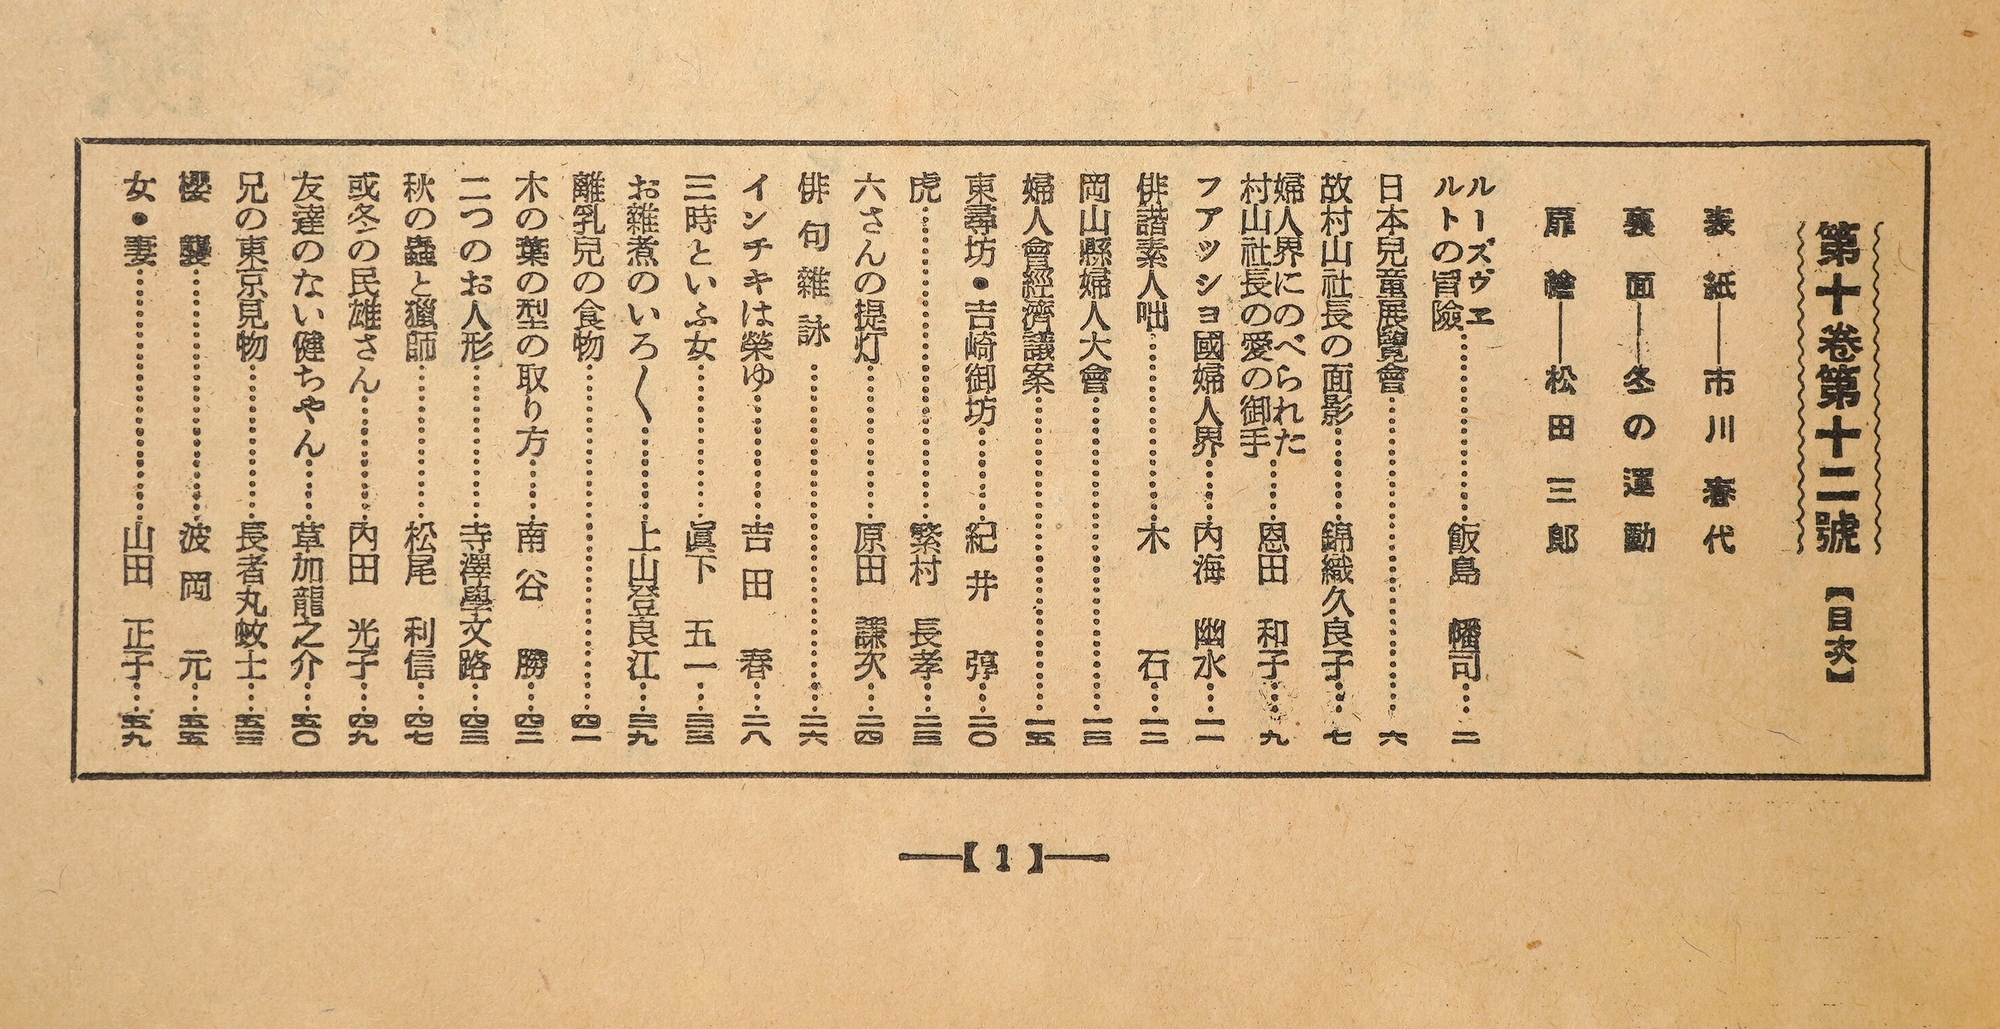 第十卷第十二號【目次】
表紙──市川春代
裏面──冬の運動
扉繪──松田三郎
ルーズヴェ
ルトの冒險……飯島 幡司…二
日本兒童展覽會……六
故村山社長の面影……錦織久良子…七
婦人界にのべられた
村山社長の愛の御手……恩田 和子…九
フアツシヨ國婦人界……内海 幽水…一一
俳諧素人咄……木 石…一二
岡山縣婦人大會……一三
婦人會經濟議案……一五
東尋坊・吉崎御坊……紀井 弴…二〇
虎……繁村 長孝…二三
六さんの提灯……原田 謙次…二四
俳句雜詠……二六
インチキは榮ゆ……吉田 春…二八
三時といふ女……眞下 五一…三三
お雜煮のいろ〱……上山登良江…三九
離乳兒の食物……四一
木の葉の型の取り方……南谷 勝…四二
二つのお人形……寺澤學文路…四三
秋の蟲と獵師……松尾 利信…四七
或冬の民雄さん……内田 光子…四九
友達のない健ちやん……草加龍之介…五〇
兄の東京見物……長者丸蚊士…五三
櫻襲……波岡 元…五五
女・妻……山田 正子…五九
【1】